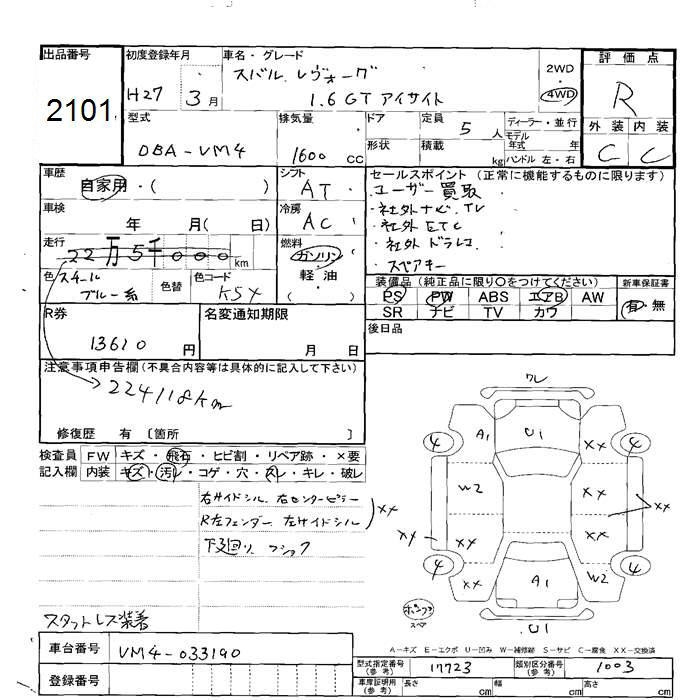 出品番号 初度登録年月 車名・グレード 評価点
2101 H27 3月 スバル レヴォーグ 2WD・4WD R
1.6GT アイサイト
型式 排気量 ドア 定員 5人 ディーラー・並行 外装 内装
DBA-VM4 1600cc 形状 積載 kg モデル年式 年 ハンドル 左・右 C C
車歴 シフト セールスポイント (正常に機能するものに限ります)
自家用・( ) AT ユーザー買取
車検 冷房 ・社外ナビ、TV
年 月( 日) AC ・社外ETC
走行 燃料 ・社外ドラレコ
22万5千000km ガソリン ・スペアキー
色 スチールブルー系 色替 色コード K5X 軽油 ( )
装備品 (純正品に限り○をつけてください) 新車保証書
PS PW ABS エアB AW 有・無
SR ナビ TV カワ
R券 名変通知期限 後日品
13610円 月 日
注意事項申告欄 (不具合内容等は具体的に記入して下さい)
224118km
修復歴 有 〔箇所 〕
検査員 FW キズ・飛石・ヒビ割・リペア跡・×要
記入欄 内装 キズ・汚れ・コゲ・穴・スレ・キレ・破レ
右サイドシル、右センターピラー
R左フェンダー 左サイドシル XX
下廻り フシュク
スタットレス装着
ワレ
4 A1 U1 XX 4
W2 XX
XX XX XX XX
4 XX A1 W2 4
U1
スペア
A-キズ E-エクボ U-凹み W-補修跡 S-サビ C-腐食 XX-交換済
車台番号 VM4-033190
型式指定番号 (参考) 17723 類別区分番号 (参考) 1003
登録番号 車庫証明用 (参考) 長さ cm 幅 cm 高さ cm